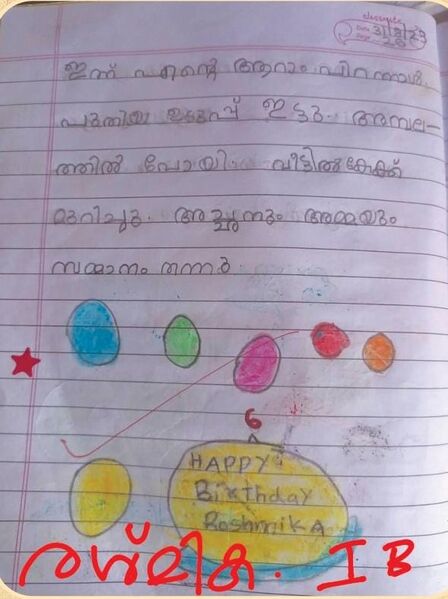 classmate
Date 31/8/23
Page 26
ഇന്ന് എന്റെ ആറാം പിറന്നാൾ.
പുതിയ ഉടുപ്പ് ഇട്ടു. അമ്പല-
ത്തിൽ പോയി. വീട്ടിൽ കേക്ക്
മുറിച്ചു. അച്ഛനും അമ്മയും
സമ്മാനം തന്നു.
6
HAPPY
Birthday
Roshmika
രശ്മിക. I B